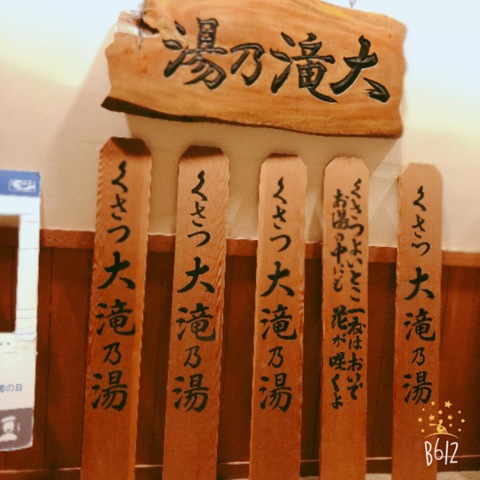 大滝乃湯
くさつ大滝乃湯
くさつよいとこ一度はおいで
お湯の中にも花が咲くよ
くさつ大滝乃湯
くさつ大滝乃湯
くさつ大滝乃湯
の日
B612